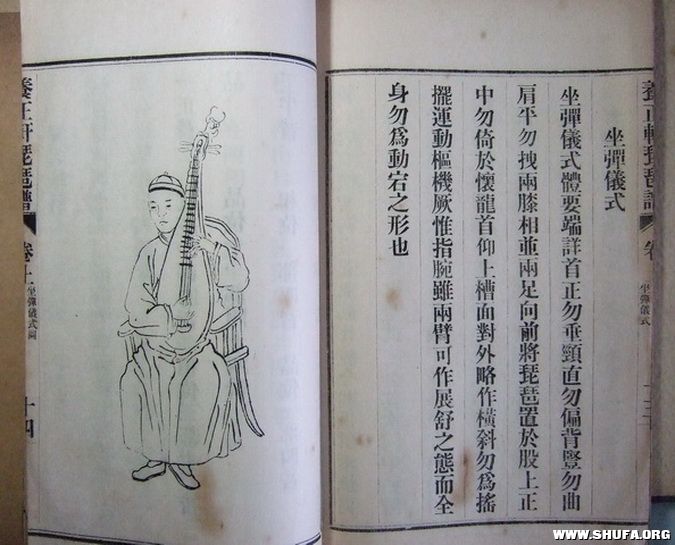 養正軒琵琶譜
卷
坐彈儀式
坐彈儀式
坐彈儀式體要端詳首正勿垂頸直勿偏背豎勿曲
肩平勿拽兩膝相並兩足向前將琵琶置於股上正
中勿倚於懷龍首仰上槽面對外略作橫斜勿爲搖
擺運動樞機厥惟指腕雖兩臂可作展舒之態而全
身勿爲動宕之形也
養正軒琵琶譜
卷上
坐彈儀式圖
十四
WWW.SHUFA.ORG